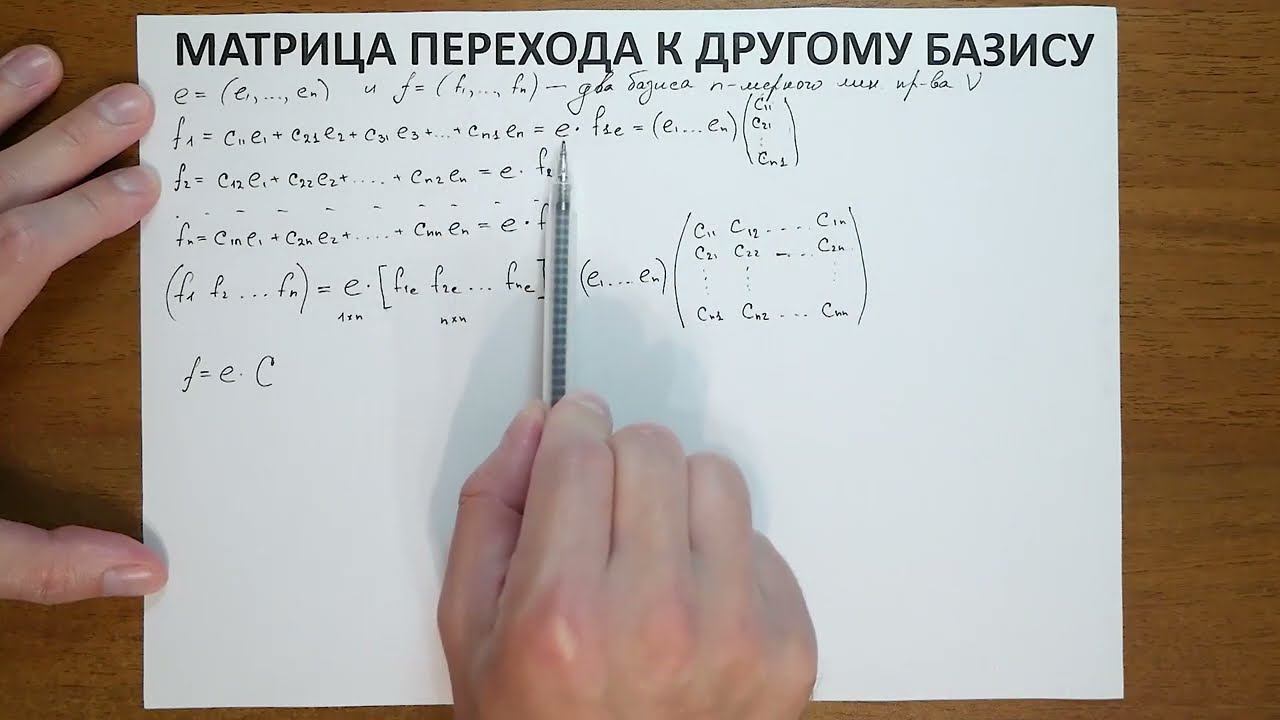 МАТРИЦА ПЕРЕХОДА К ДРУГОМУ БАЗИСУ
e = (e₁,..., eₙ) и f = (f₁,..., fₙ) — два базиса n-мерного лин. пр-ва V
f₁ = c₁₁e₁ + c₂₁e₂ + c₃₁e₃ +...+ cₙ₁eₙ = e · f₁ₑ = (e₁...eₙ) (c₁₁ c₂₁ ⋮ cₙ₁)
f₂ = c₁₂e₁ + c₂₂e₂ + .... + cₙ₂eₙ = e · f₂
fₙ = c₁ₙe₁ + c₂ₙe₂ + .... + cₙₙeₙ = e · f
(f₁ f₂ ... fₙ) = e · [f₁ₑ f₂ₑ ... fₙₑ] (e₁....eₙ)
1×n n×n
c₁₁ c₁₂ .... c₁ₙ
c₂₁ c₂₂ ... c₂ₙ
⋮ ⋮ ⋮
cₙ₁ cₙ₂ ... cₙₙ
f = e · C